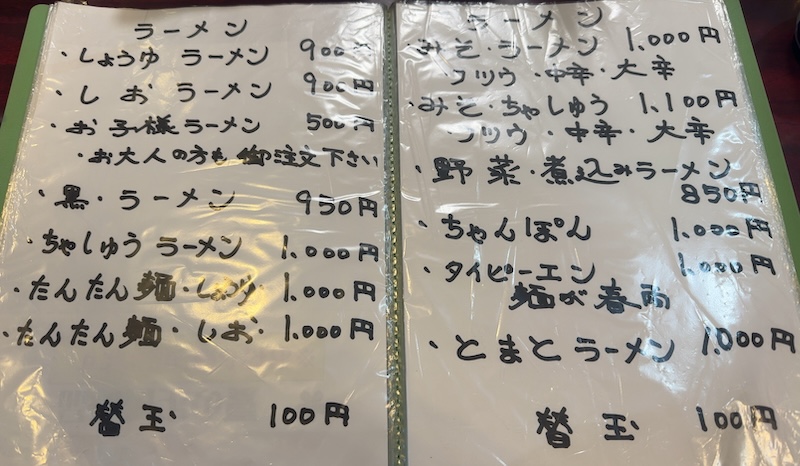 ラーメン
・しょうゆ ラーメン 900円
・しお ラーメン 900円
・お子様ラーメン 500円
・お大人の方も御注文下さい
・黒・ラーメン 950円
・ちゃしゅうラーメン 1.000円
・たんたん麺・しょうゆ 1.000円
・たんたん麺・しお 1.000円
替玉 100円
ラーメン
・みそ・ラーメン 1.000円
フツウ・中辛・大辛
・みそ・ちゃしゅう 1.100円
フツウ・中辛・大辛
・野菜・煮込みラーメン
850円
・ちゃんぽん 1.000円
・タイピーエン 1.000円
麺が春雨
・とまとラーメン 1.000円
替玉 100円